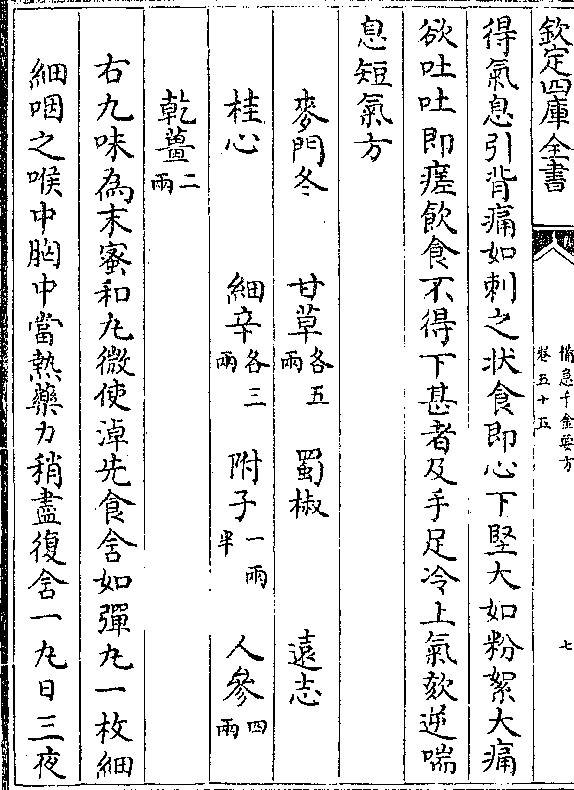 欽定四庫全書
備急千金要方
卷五十五
七
得氣息引背痛如刺之状食即心下堅大如粉絮大痛
欲吐吐即瘥飲食不得下甚者及手足冷上氣欬逆喘
息短氣方
麥門冬 甘草各五兩 蜀椒 遠志
桂心 細辛各三兩 附子一兩半 人參四兩
乾薑二兩
右九味為末蜜和丸微使淖先食含如彈丸一枚細
細咽之喉中胸中當熱藥力稍盡復含一丸日三夜